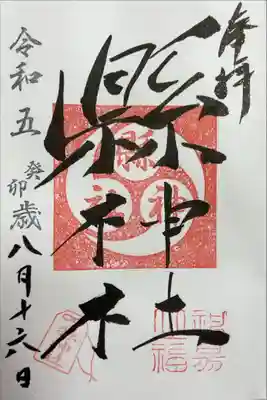 奉拝
縣神社
令和五癸卯歳八月十六日
縣神社